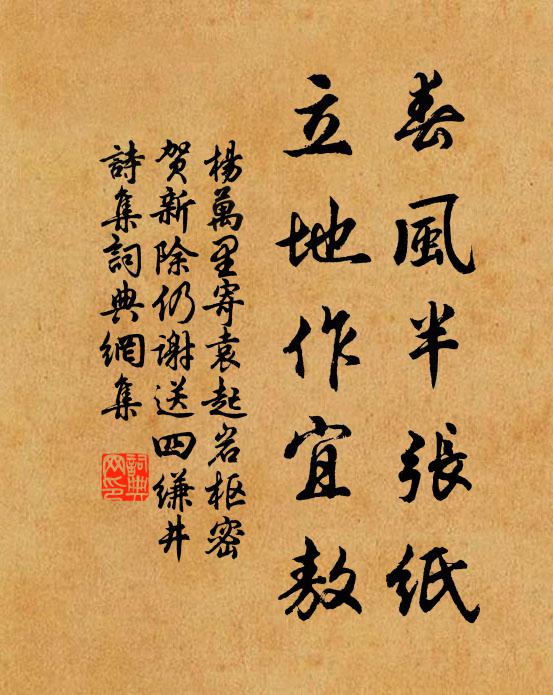 春風半張紙
立地作宜敖
楊萬里寄袁起岩枢密
贺新除仍谢送四縑井
詩集詞典網集
詞典网印